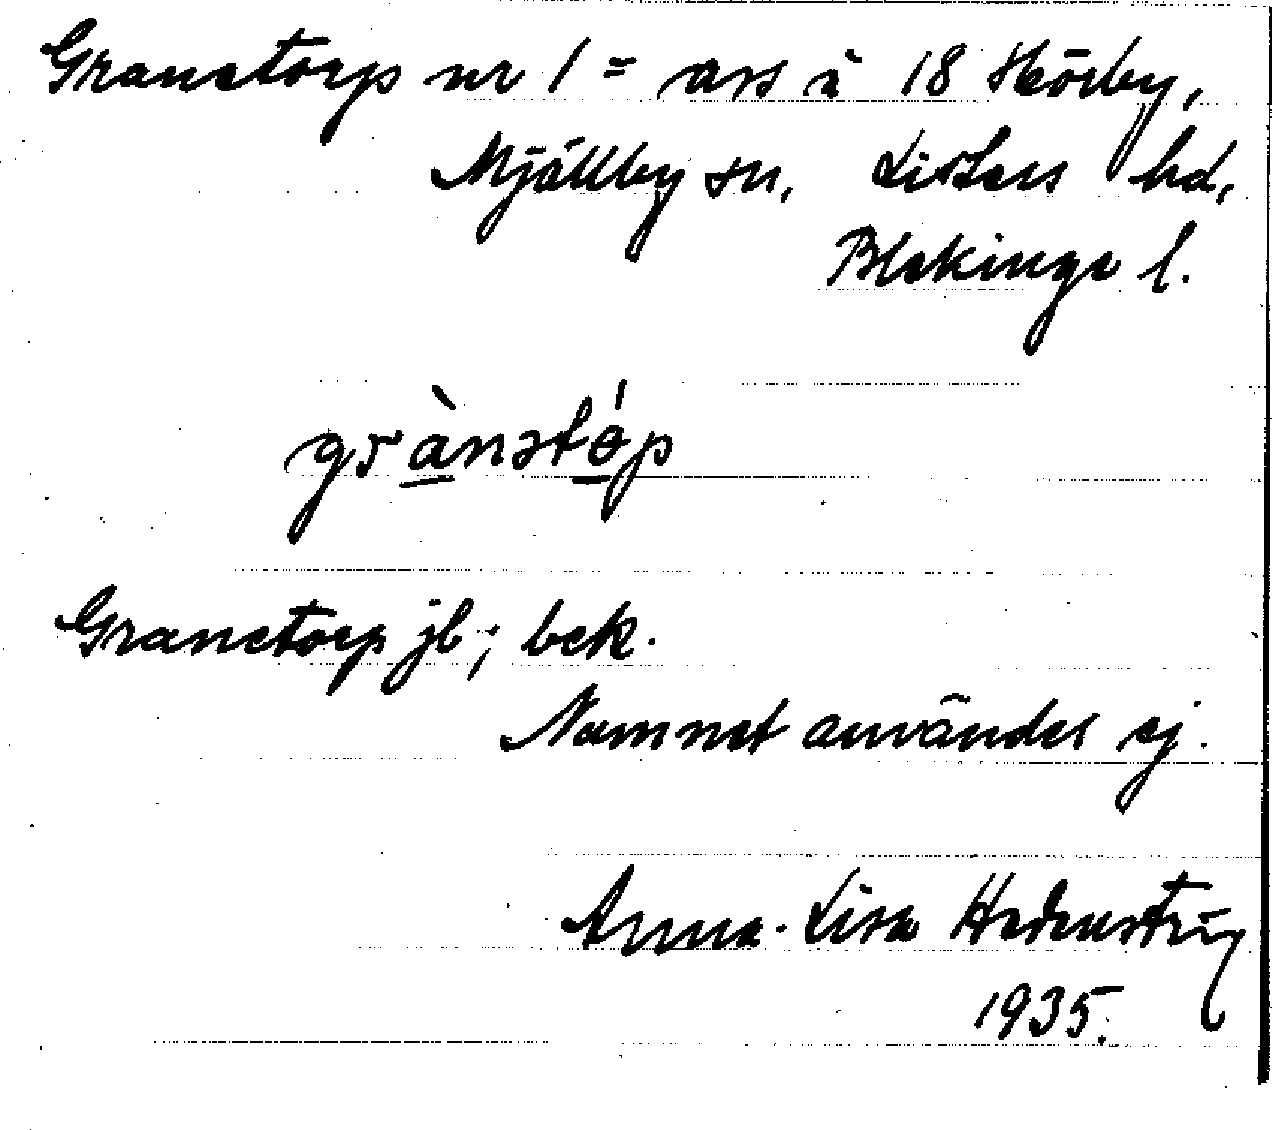 Granetorp nr 1 = avs å 18 Hörby,
Mjällby sn, Listers hd,
Blekinge l.
grànətóp
Granetorp jb; bek.
Namnet användes ej.
Anna-Lisa
1935.